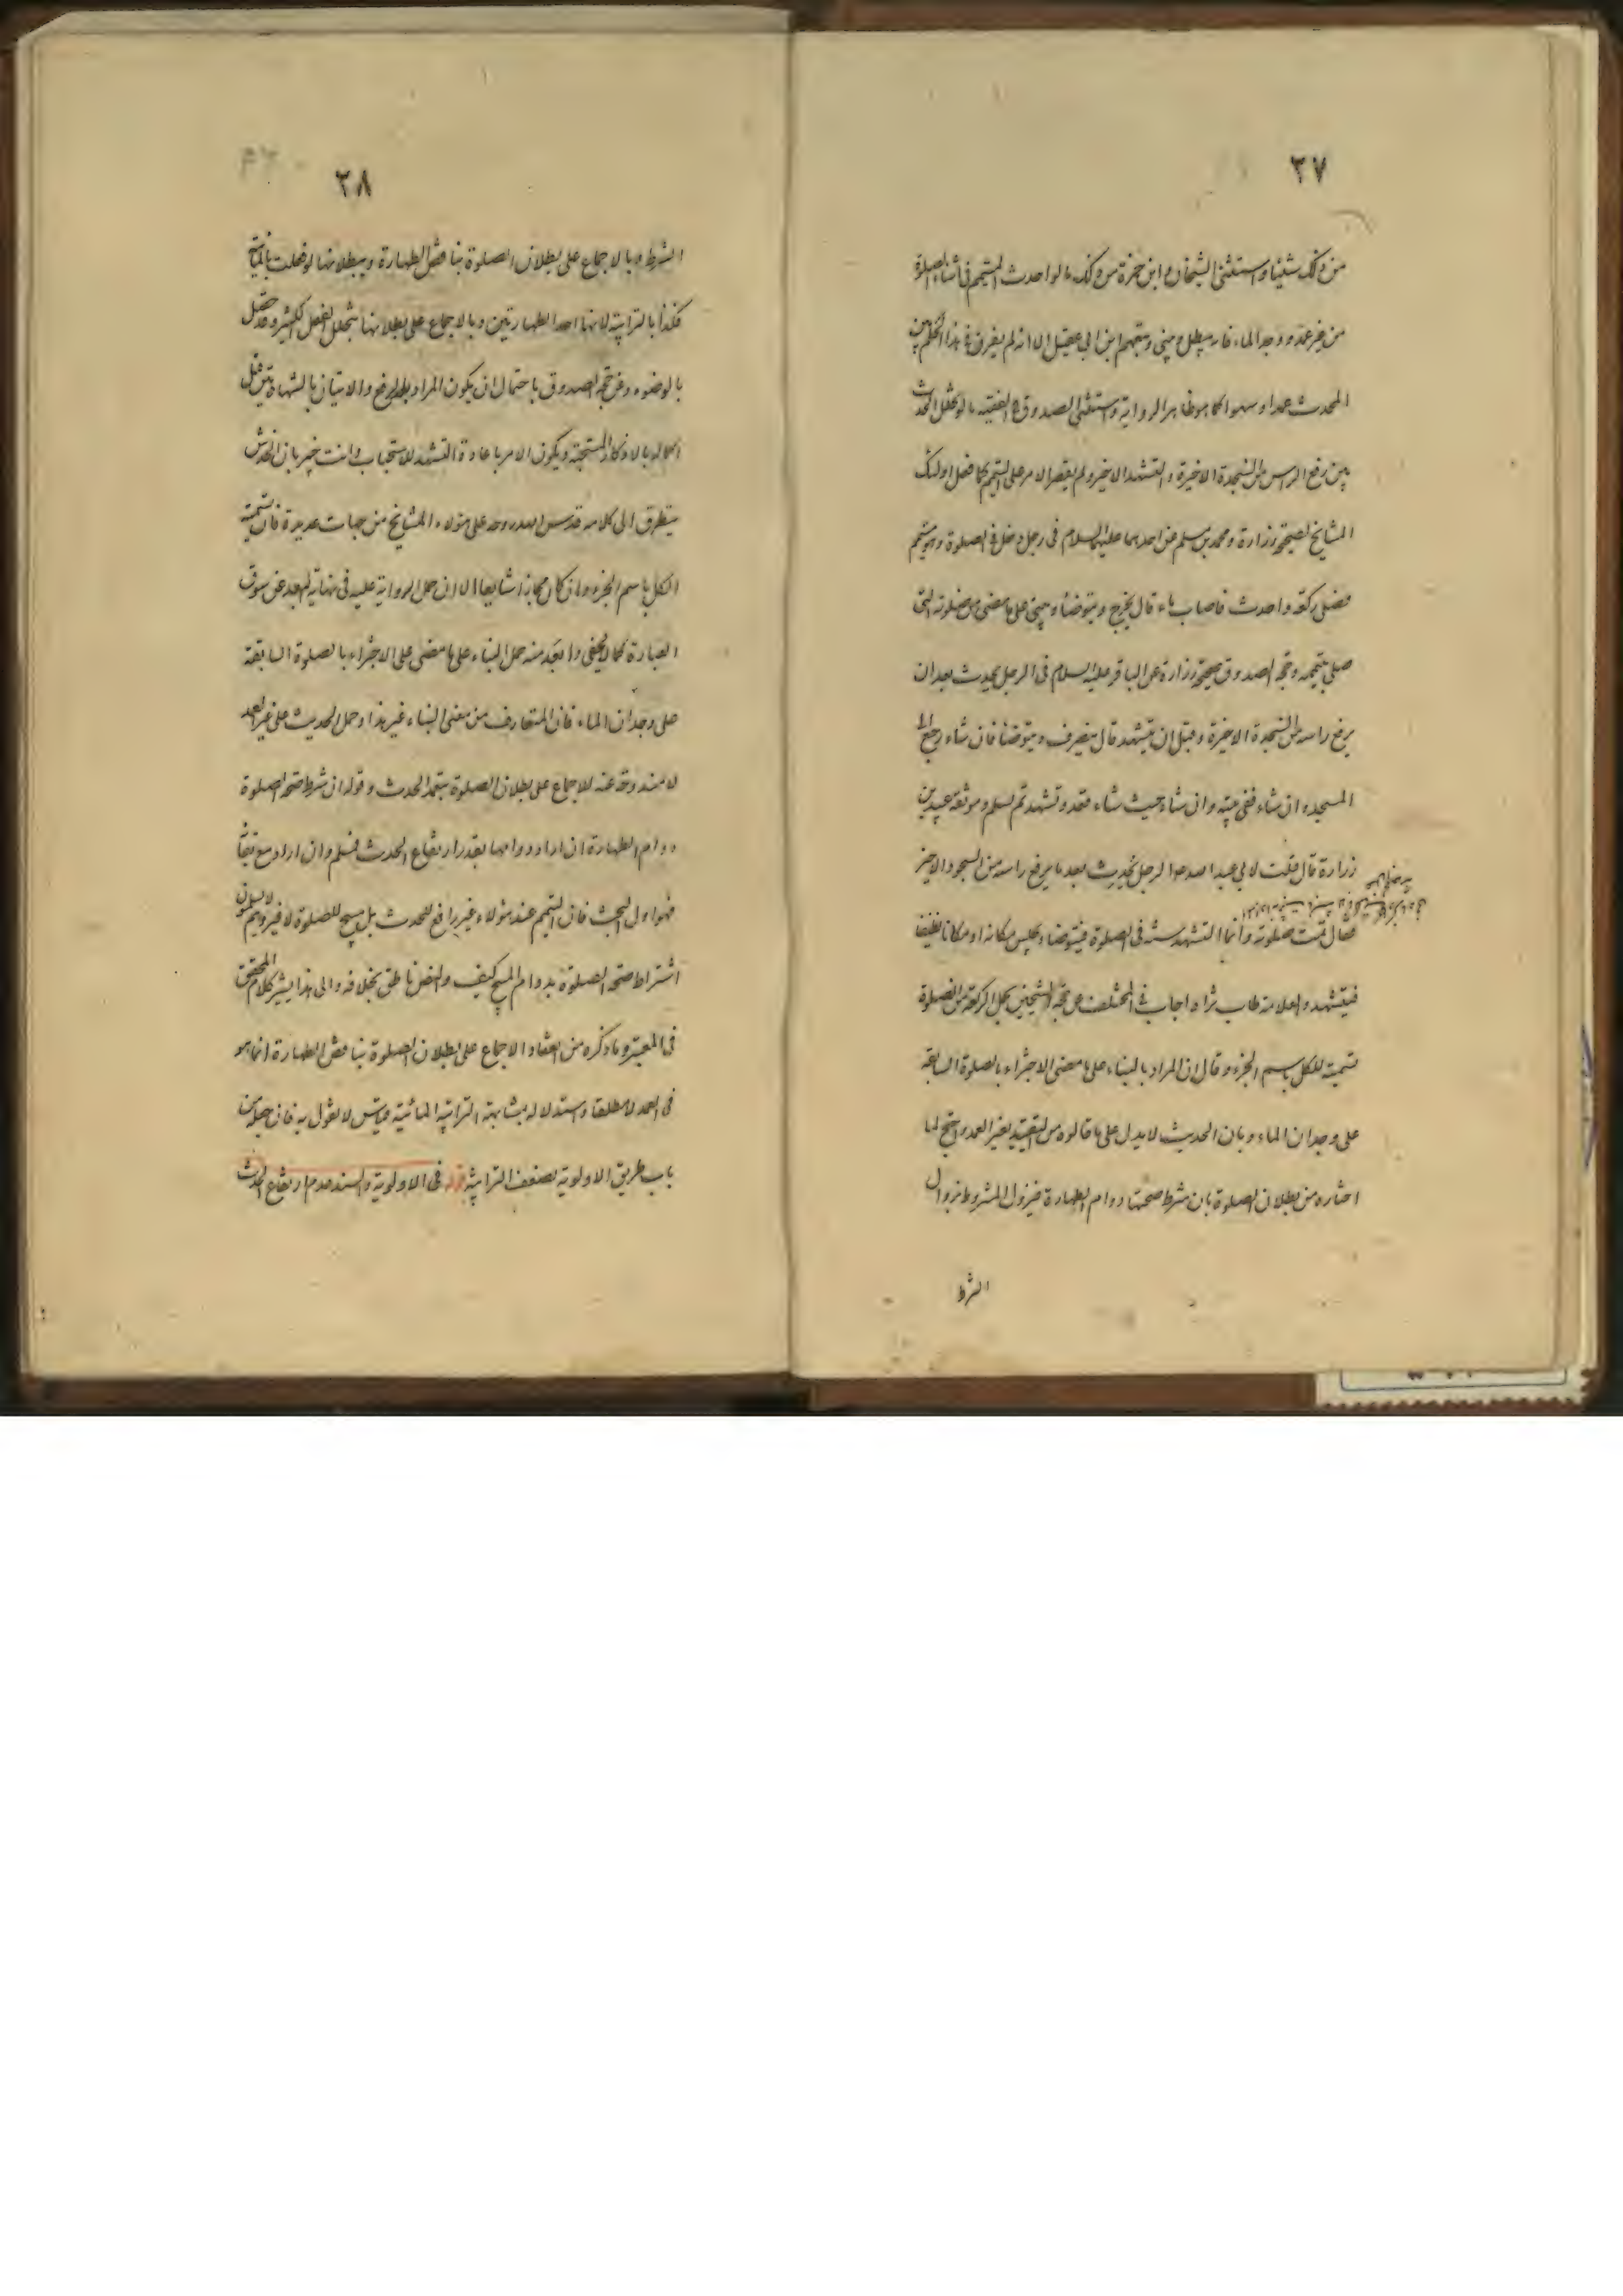 ٢٧
من ذلك شيئا واستثنى الشيخان وابن حمزة من ذلك ما لو احدث المتيمم في اثناء الصلوة
من غير عمد ووجد الماء فانه يبطل ويبني وتبعهم ابن ابي عقيل الا انه لم يفرق في هذا الحكم بين
المحدث عمدا وسهوا كما هو ظاهر الرواية واستثنى الصدوق في الفقيه ما لو تخلل الحدث
بين رفع الراس من السجدة الاخيرة والتشهد الاخير ولم يقصر الامر على المتيمم كما فعل اولئك
المشايخ لصحيحة زرارة ومحمد بن مسلم عن احدهما عليهما السلام في رجل دخل في الصلوة وهو متيمم
فصلى ركعة واحدث فاصاب ماء قال يخرج ويتوضأ ويبني على ما مضى من صلوته التي
صلى بتيممه وحجة الصدوق صحيحة زرارة عن الباقر عليه السلام في الرجل يحدث بعد ان
يرفع راسه من السجدة الاخيرة وقبل ان يتشهد قال ينصرف ويتوضأ فان شاء رجع الى
المسجد وان شاء ففي بيته وان شاء حيث شاء قعد وتشهد ثم يسلم وموثقة عبيد بن
زرارة قال قلت لابي عبد الله عه الرجل يحدث بعد ما يرفع راسه من السجود الاخير
فقال تمت صلوته وانما التشهد سنة في الصلوة فيتوضاء ويجلس مكانه او مكانا نظيفا
فيتشهد والعلامة طاب ثراه اجاب في المختلف عن حجة الشيخين بحمل الركعة من الصلوة
تسمية للكل باسم الجزء وقال ان المراد بالبناء على ما مضى الاجتزاء بالصلوة السابقة
على وجدان الماء وبان الحديث لا يدل على ما قالوه من التقييد بغير العمد واحتج لما
اختاره من بطلان الصلوة بان شرط صحتها دوام الطهارة فيزول المشروط بزوال
الشرط
٢٨
الشرط وبالاجماع على بطلان الصلوة بناقض الطهارة وببطلانها لو فعلت بالمائية
فكذا بالترابية لانها احد الطهارتين وبالاجماع على بطلانها بتخلل الفعل الكثير وقد حصل
بالوضوء وعن حجة الصدوق باحتمال ان يكون المراد بعد الرفع والاتيان بالشهادتين قبل
اكماله بالاذكار المستحبة ويكون الامر باعادة التشهد للاستحباب وانت خبير بان الخدش
يتطرق الى كلامه قدس الله روحه على هؤلاء المشايخ من جهات عديدة فان تسمية
الكل باسم الجزء وان كان مجازا شايعا الا ان حمل الرواية عليه في نهاية البعد عن سوق
العبارة كما لا يخفى وابعد منه حمل البناء على ما مضى على الاجتزاء بالصلوة السابقة
على وجدان الماء فان المتعارف من معنى البناء غير هذا وحمل الحديث على غير العمد
لا مندوحة عنه للاجماع على بطلان الصلوة بتعمد الحدث وقوله ان شرط صحة الصلوة
دوام الطهارة ان اراد دوامها بقدر ارتفاع الحدث فمسلم وان اراد مع بقاء
فهو اول البحث فان التيمم عند هؤلاء غير رافع للحدث بل مبيح للصلوة لا غير وهم لا يسلمون
اشتراط صحة الصلوة بدوام المبيح كيف والنص ناطق بخلافه والى هذا يشير كلام المحقق
في المعتبر وما ذكره من انعقاد الاجماع على بطلان الصلوة بناقض الطهارة انما هو
في العمد لا مطلقا واستدلاله بمشابهة الترابية المائية قياس لا نقول به فان جعله من
باب طريق الاولوية لضعف الترابية قلنا في الاولوية والسند عدم ارتفاع الحدث